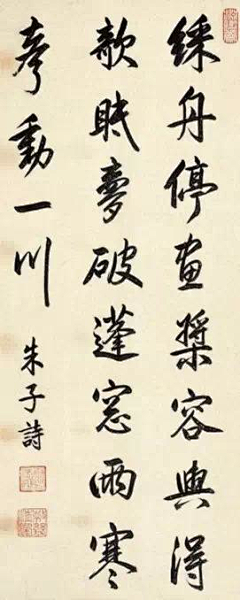 綵舟停畫槳容與得
欹眠夢破蓬窓雨寒
聲動一川
朱子詩